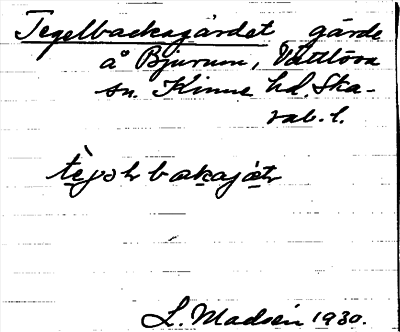 Tegelbackagärdet gärde
å Bjurum, Vättlösa
sn. Kinne hd. Ska-
rab. l.
L. Madsén 1930.